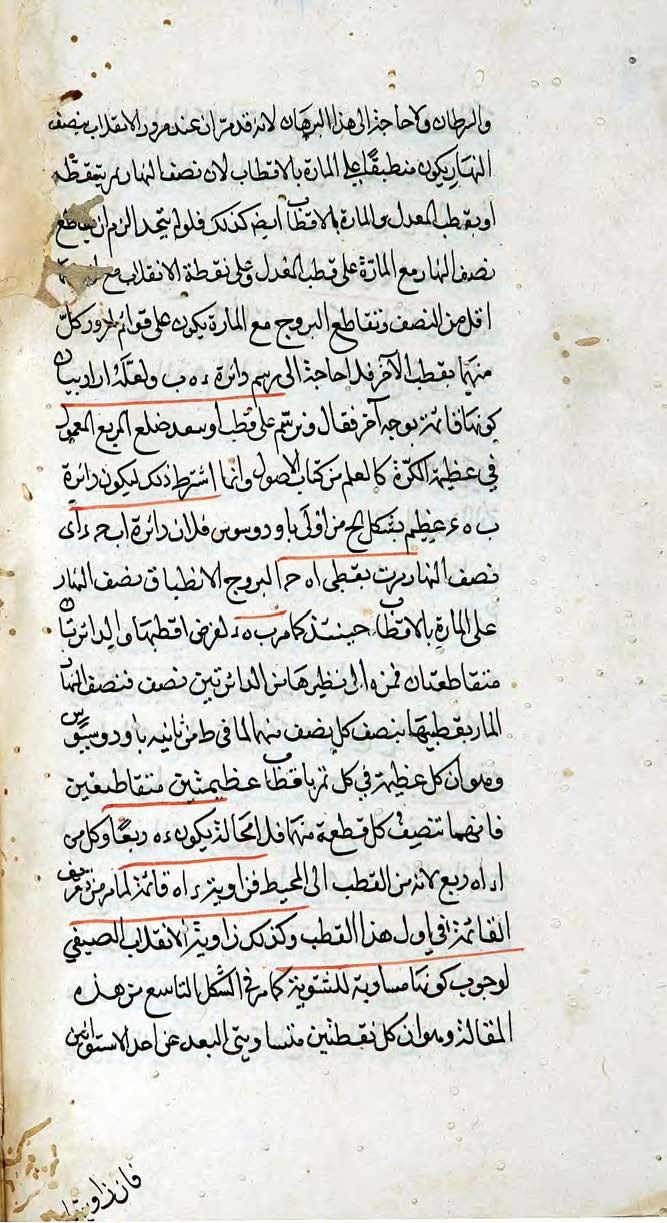 والسرطان ولا حاجة الى هذا البرهان لانه قد مر ان عند مرور الانقلاب بنصف
النهار يكون منطبقا على المارة بالاقطاب لان نصف النهار يمر بنقطة
او بقطب المعدل والمارة بالاقطاب ايض كذلك فلو لم يتحد الزم ان يقاطع
نصف النهار مع المارة على قطب المعدل وعلى نقطة الانقلاب مع
اقل من النصف وتقاطع البروج مع المارة يكون على قوائم لمرور كل
منهما بقطب الآخر فلا حاجة الى رسم دائرة ء ه ب ولعله اراد بيان
كونها قائمة بوجه آخر فقال ونرسم على قطب ا وببعد ضلع المربع المعمول
في عظيمة الكرة كما لعلم من كتاب الاصول وانما اشترط ذلك ليكون دائرة
ب ه ء عظيم بشكل يح من اولى ثاودوسوس فلان دائرة ا ب ح ء اى
نصف النهار مرت بقطبى ا ه ح البروج لانطباق نصف النهار
على المارة بالاقطاب حينئذ كما مر ب ه ء لفرض ا قطبها والدائرتان
متقاطعتان فمن ه الى نظيرها من الدائرتين نصف فنصف النهار
المار بقطبيهما ينصف كل نصف منهما لما في ط من ثانية ثاودوسيوس
وهو ان كل عظيمة في كل تمر باقطاب عظيمتين متقاطعتين
فانهما تنصف كل قطعة منهما فلا محالة يكون ء ه ربعا وكل من
ا ء ا ه ربع لانه من القطب الى المحيط فزاوية ء ا ه قائمة لما مر من تعريف
القائمة في اول هذا القطب وكذلك زاوية الانقلاب الصيفي
لوجوب كونها مساوية للشتوية كما مر في الشكل التاسع من هذه
المقالة وهو ان كل نقطتين متساويتى البعد عن احد الاستوائين
فان زاويتا